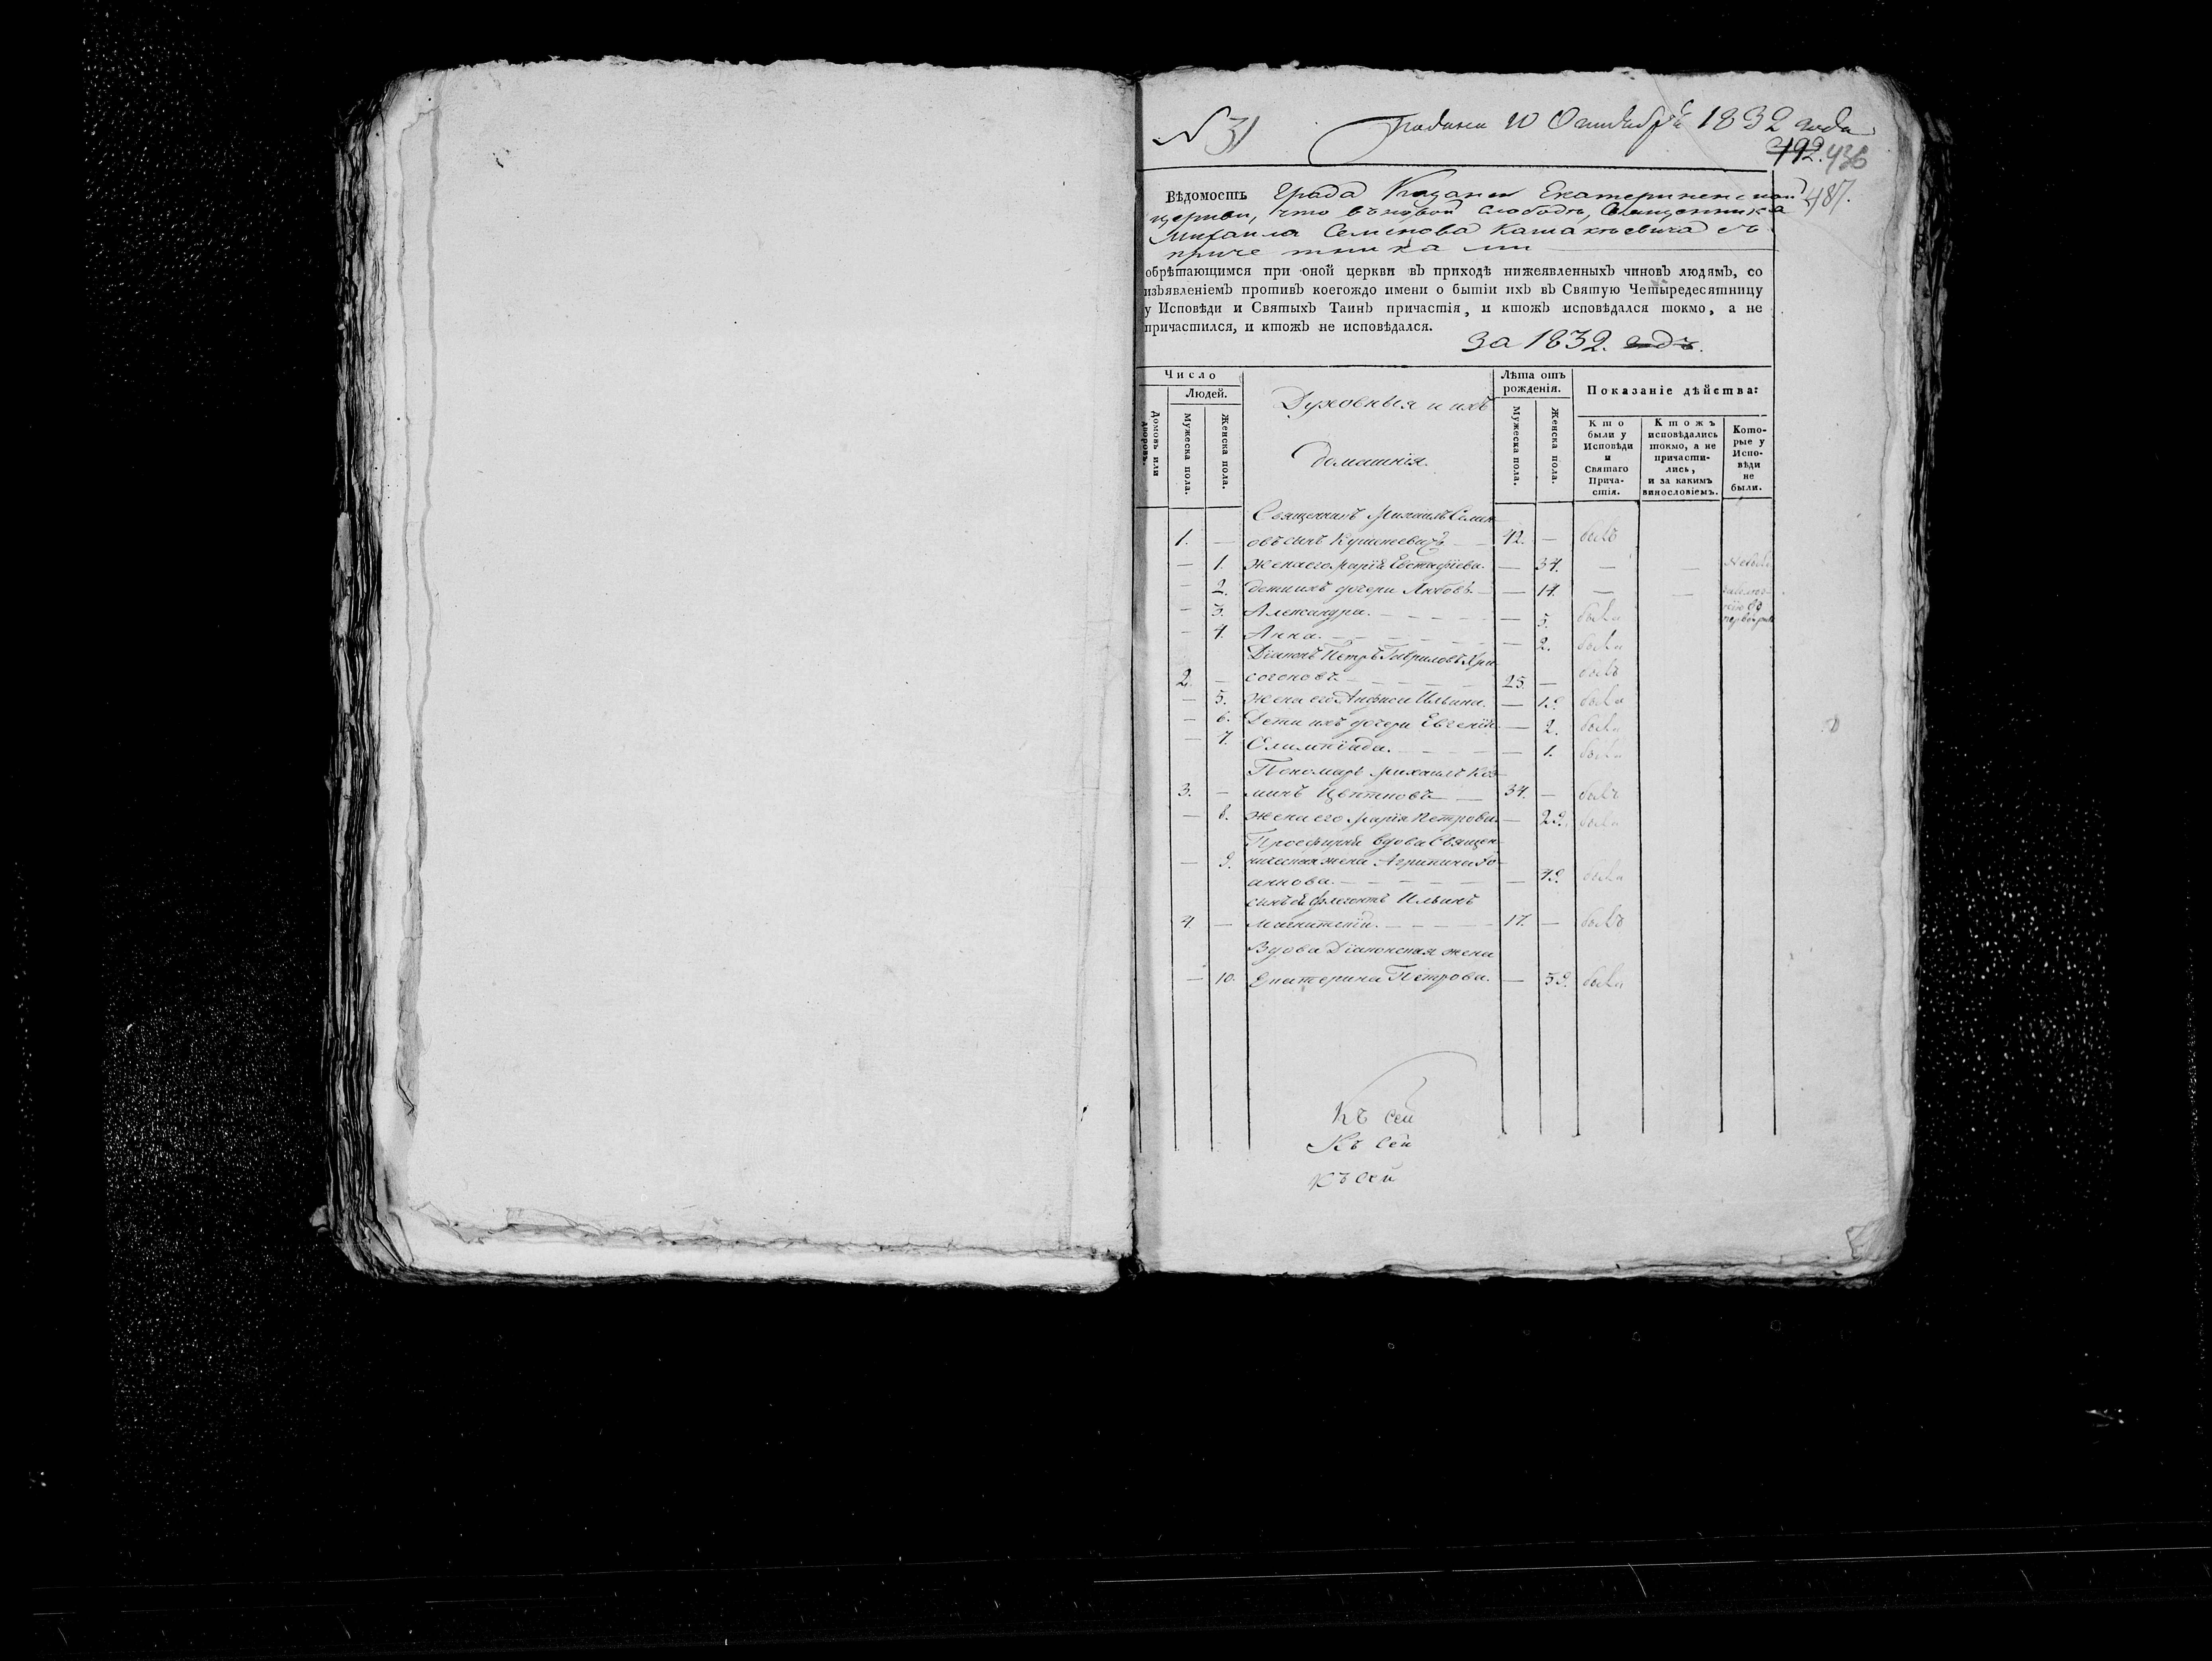 N 31
Подана 10 Октября 1832 года
492. 436
487.
Вѣдомость Града Казани Екатерининской
церкви, что въ новой слободѣ, Священника
Михаила Семенова с
причетниками
обрѣтающимся при оной церкви въ приходѣ нижеявленныхъ чиновъ людямъ, со
изъявленіемъ противъ коегождо имени о бытіи ихъ въ Святую Четыредесятницу
у Исповѣди и Святыхъ Таинъ причастія, и ктожъ исповѣдался токмо, а не
причастился, и ктожъ не исповѣдался.
За 1832. годъ.
Число
Людей.
Домовъ или дворовъ.
Мужеска пола.
Женска пола.
Духовныя и ихъ
домашнія.
Лѣта отъ рожденія.
Мужеска пола.
Женска пола.
Показаніе дѣйства:
Кто были у Исповѣди и Святаго Причастія.
Ктожъ исповѣдались токмо, а не причастились, и за какимъ винословіемъ.
Которые у Исповѣди не были.
Священникъ Михаилъ Семен
1. — овъ сынъ — 42. — былъ
— 1. Жена его Марія Евстафіева. — 34. — —
— 2. Дети ихъ дочери Любовь — — 14. — —
— 3. Александра. — — 5. была
— 4. Анна. — — 2. была
Діаконъ Петръ Гавриловъ Хри
2. — согоновъ — 25. — былъ
— 5. Жена его Анфиса Ильина. — 19. была
— 6. Дети ихъ дочери Евгенія — 2. была
— 7. Олимпіада. — — 1. была
Пономарь Михаилъ Коз
3. — минъ Цветковъ — 34. — былъ
— 8. Жена его Марія Петрова. — 29. была
Просфирня вдова Священ
— 9. ническая жена Агрипина Іо
аннова. — — 49. была
сынъ ея Флегонтъ Ильинъ
4. — — 17. — былъ
Вдова Діаконская жена
— 10. Екатерина Петрова. — 59. была
Къ сей
Къ сей
Къ сей